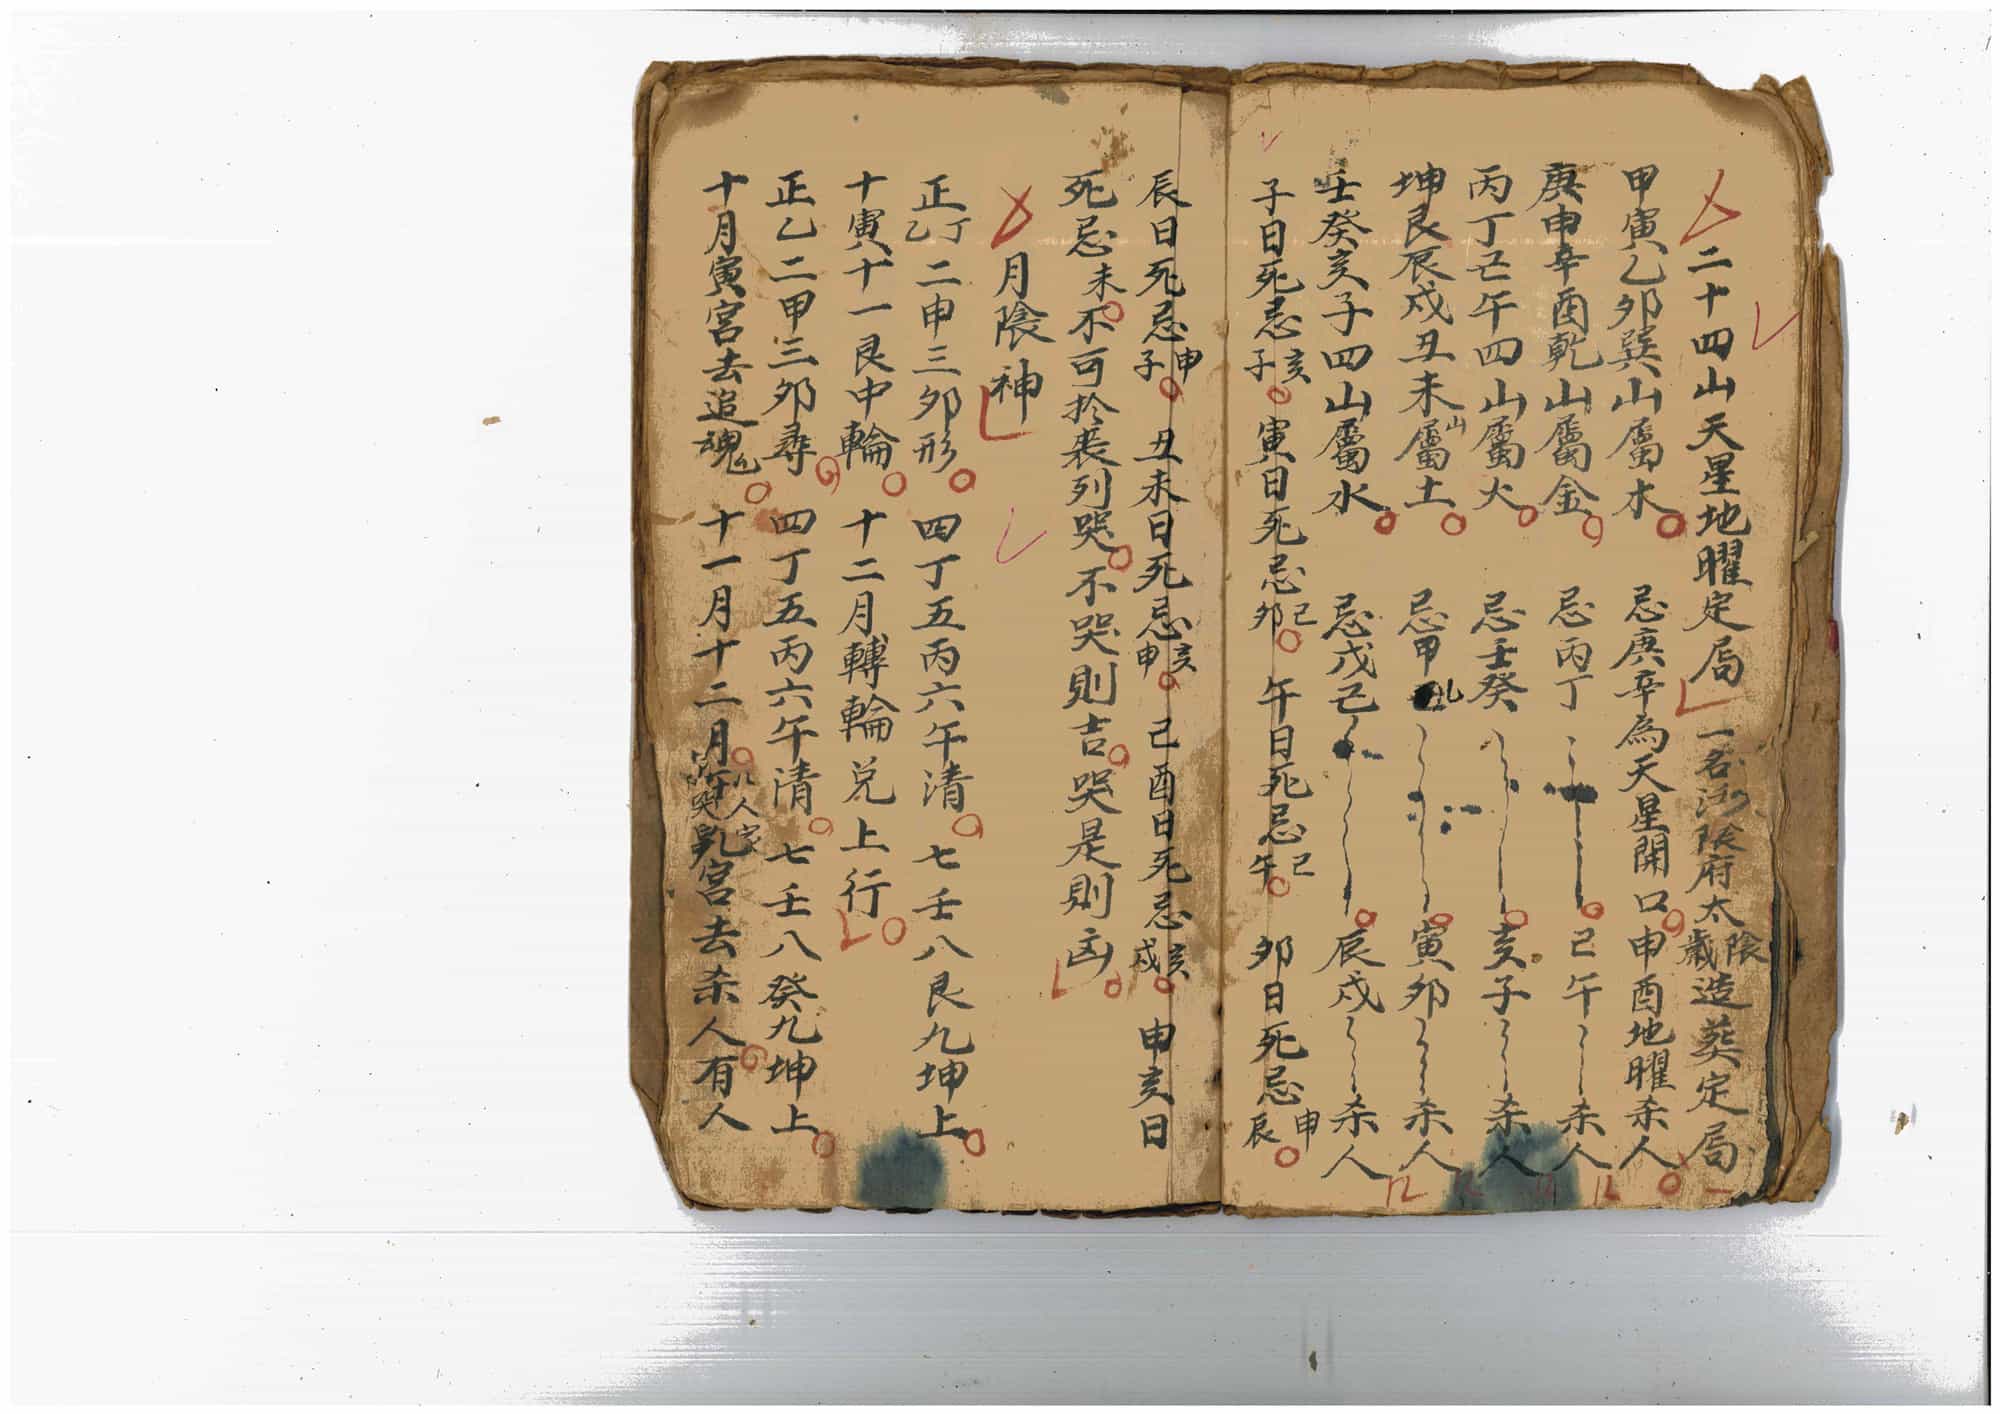 二十四山天星地曜定局 一名 陰府太陰歲造葬定局
甲寅乙夘巽山屬木 忌庚辛為天星開口申酉地曜杀人
庚申辛酉乾山屬金 忌丙丁 巳午 杀人
丙丁巳午四山屬火 忌壬癸 亥子 杀人
坤艮辰戍丑未山屬土 忌甲乙 寅夘 杀人
壬癸亥子四山屬水 忌戊己 辰戍 杀人
子日死忌亥子 寅日死忌巳夘 午日死忌巳午 夘日死忌申辰
辰日死忌申子 丑未日死忌亥申 己酉日死忌亥戍 申亥日
死忌未不可扵喪列哭不哭則吉哭是則凶
月陰神
正丁乙二申三夘形 四丁五丙六午清 七壬八艮九坤上
十寅十一艮中輪 十二月轉輪兑上行
正乙二甲三夘尋 四丁五丙六午清 七壬八癸九坤上
十月寅宮去追魂 十一月十二月 宮去杀人有人